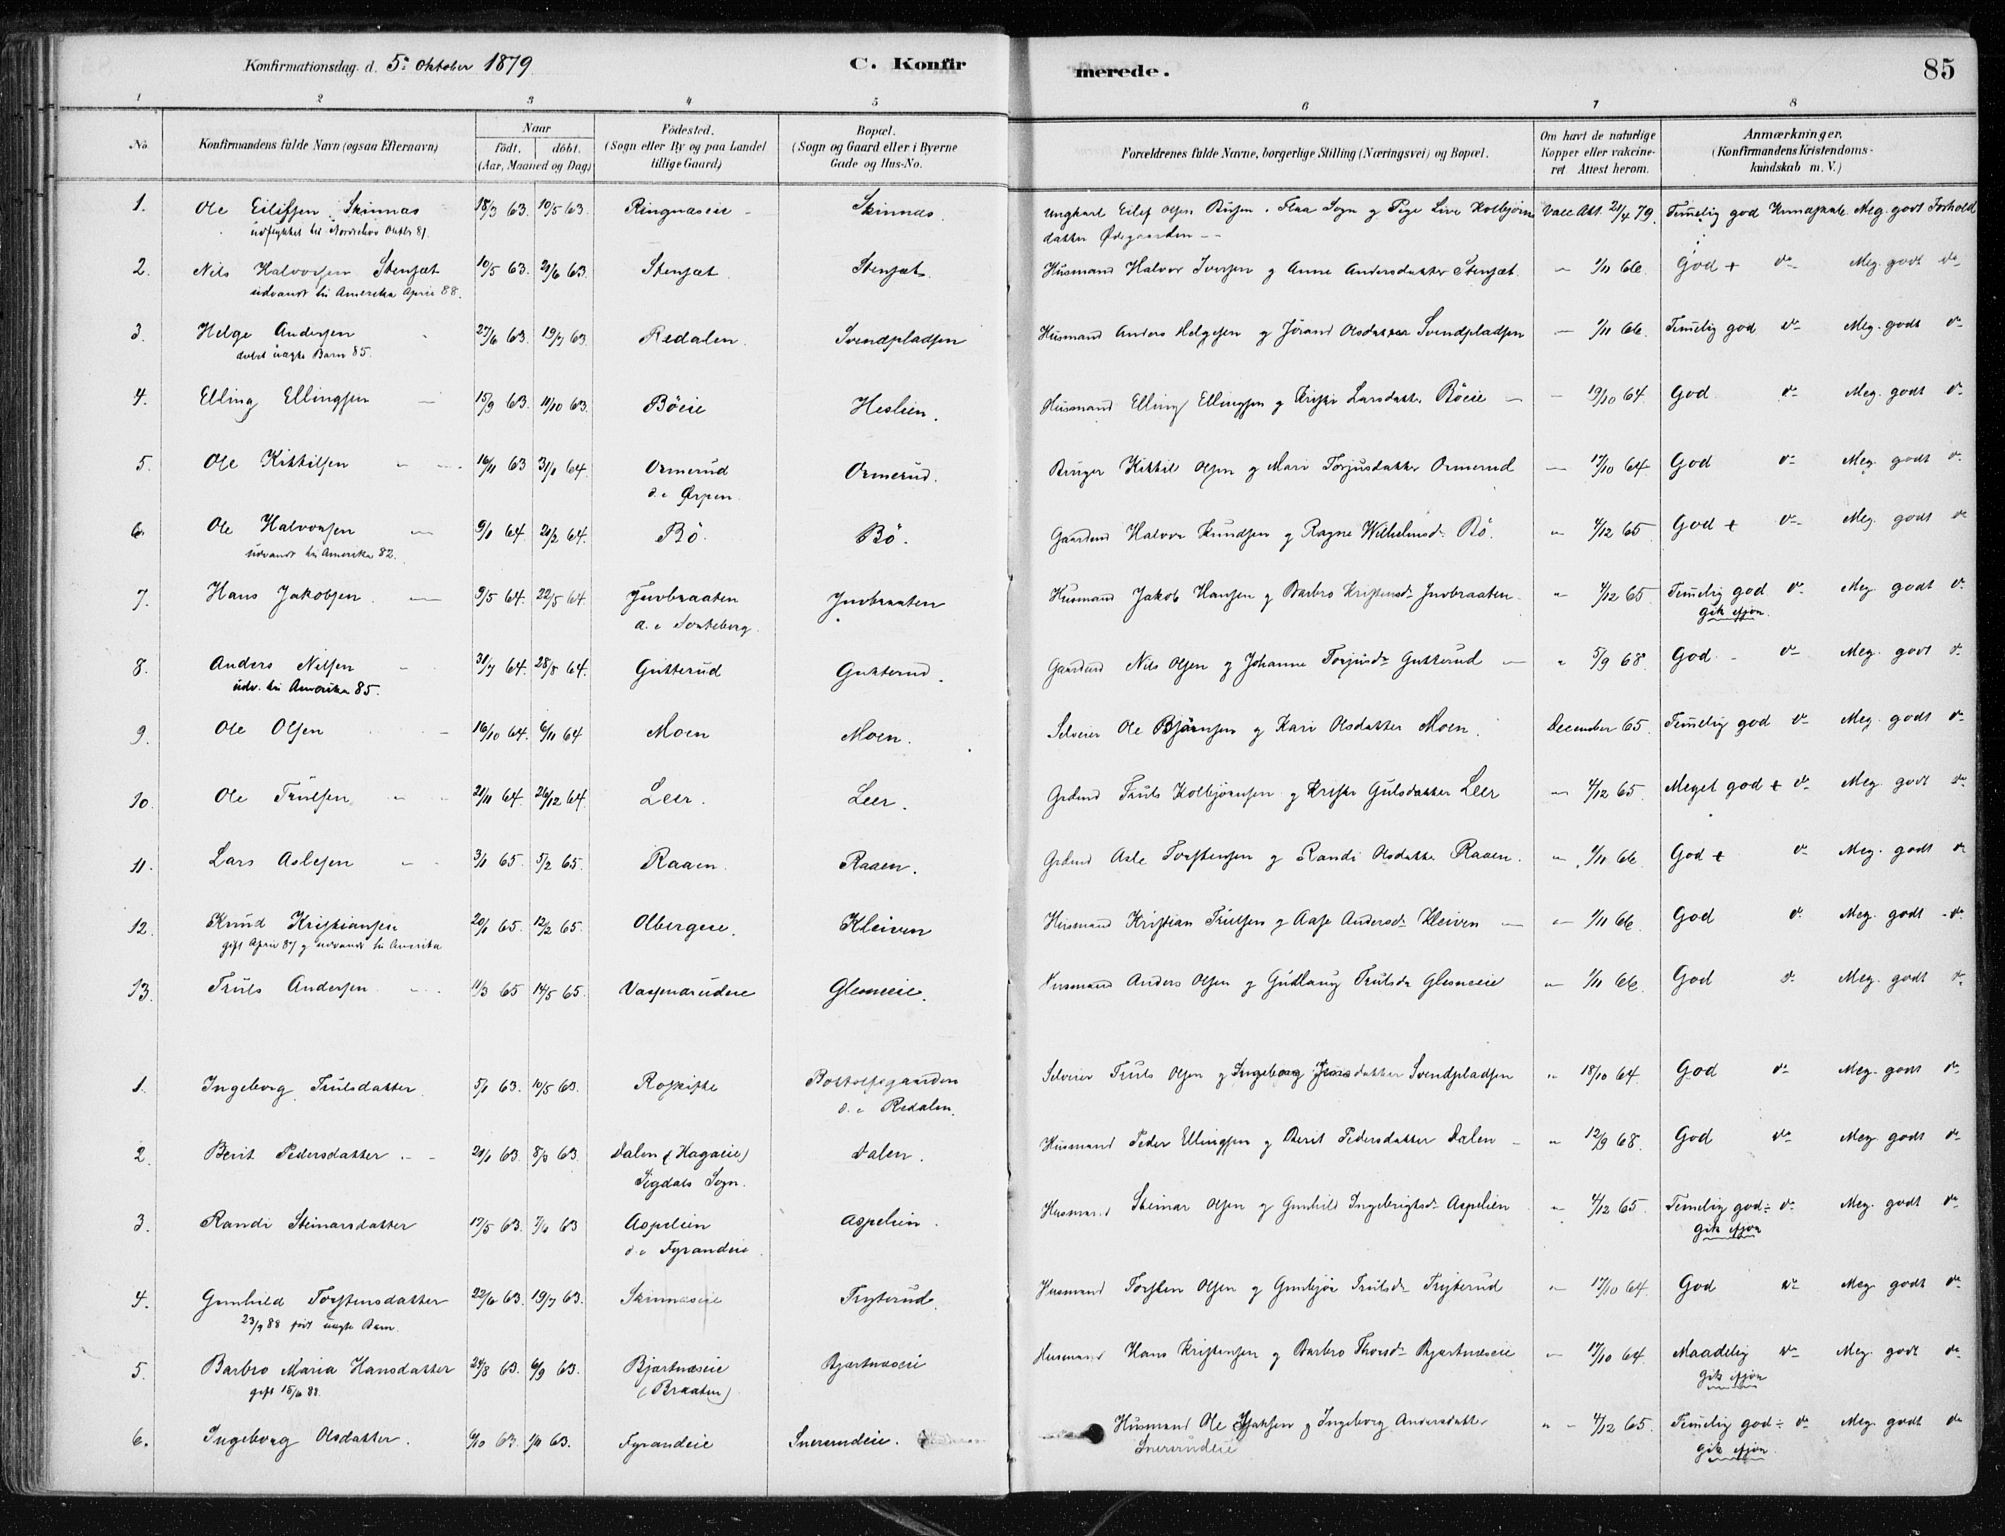 Konfirmationsdag. d. 5: Oktober 1879.
C. Konfir
merede.
85
1 2 3 4 5 6 7 8
No
Konfirmandens fulde Navn (ogsaa Efternavn)
Naar
født. døbt.
(Aar, Maaned og Dag)
Födested.
(Sogn eller By og paa Landet
tillige Gaard)
Bopæl.
(Sogn og Gaard eller i Byerne
Gade og Hus-No.
Forældrenes fulde Navne, borgerlige Stilling (Næringsvei) og Bopæl.
Om havt de naturlige
Kopper eller vakcine-
ret Attest herom.
Anmærkninger.
(Konfirmandens Kristendoms-
kundskab m. V.)
1. Ole Eilifsen Skinnæs 18/3 63. 10/5 63. Ringnæseie Skinnæs. Ungkarl Eilef Olsen i Flaa Sogn og Pige Live Kolbjørns Vacc. Att. 2/4 79. Temelig god Kundskab. Meg. godt Forhold
udflyttet til Oktbr 81. datter Ødegaarden
2. Nils Halvorsen Stensæt 10/5 63. 21/6 63. Stensæt. Stensæt. Husmand Halvor Iversen og Anne Andersdatter Stensæt. 1/11 66. God + do Meg. godt do
udvandt til Amerika April 88.
3. Helge Andersen 27/6 63. 19/7 63. Redalen. Svendpladsen Husmand Anders Helgesen og Jørand Olsdatter Svendpladsen 1/11 66. Temelig god do Meg. godt do
døbt uægte Barn 85.
4. Elling Ellingsen 15/9 63. 11/10 63. Böeie Heslien. Husmand Elling Ellingsen og Larsdatter Böeie 19/10 64. God do Meg. godt do
5. Ole Kittilsen 16/11 63 31/1 64. Ormerud Ormerud. Bruger Kittil Olsen og Mari Torjusdatter Ormerud 17/10 64 God do Meg. godt do
Ørpen.
6. Ole Halvorsen 9/1 64. 21/2 64. Bö. Bö. Gaardmd Halvor Knudsen og Ragne Wilhelmsd. Bö. 4/12 65 God + do Meg. godt do
udvandt til Amerika 82.
7. Hans Jakobsen 9/5 64. 22/5 64. Juvbraaten Juvbraaten Husmand Jakob Hansen og Barbro Kristensd. Juvbraaten 4/12 65. Temelig god do Meg. godt do
gik
8. Anders Nilsen 31/7 64. 28/8 64. Gutterud Gutterud. Gaardmd Nils Olsen og Johanne Torjusd. Gutterud 5/9 68. God do Meg. godt do
udv. til Amerika 85.
9. Ole Olsen 16/10 64. 6/11 64 Moen Moen. Selveier Ole Bjørnsen og Kari Olsdatter Moen. December 65. Temelig god do Meg. godt do
10. Ole Trulsen 21/11 64. 26/12 64. Leer. Leer. Grdmd Truls Kolbjørnsen og Gulsdatter Leer 4/12 65. Meget god + do Meg. godt do
11. Lars Aslesen 3/1 65. 5/2 65. Raaen. Raaen. Grdmd Asle Torstensen og Randi Olsdatter Raaen. 1/11 66 God + do Meg. godt do
12. Knud Kristiansen 20/1 65. 12/2 65. Olbergeie. Kleiven Husmand Kristian Trulsen og Aase Andersd. Kleiven 1/11 66. God do Meg. godt do
gift April 87 og udvandt til Amerika
13. Truls Andersen 11/3 65 14/5 65. Vasmarudeie Glesneeie. Husmand Anders Olsen og Gudlaug Trulsd. Glesneeie 1/11 66. God do Meg. godt do
1. Ingeborg Trulsdatter. 5/1 63. 10/5 63. Roskifte Bottolfsgaarden Selveier Truls Olsen og Ingeborg Jensdatter Svendpladsen 18/10 64. God do Meg. godt do
Redalen.
2. Berit Pedersdatter 20/1 63. 8/3 63. Dalen (Hagaeie) Dalen. Husmand Peder Ellingsen og Berit Pedersdatter Dalen 12/9 68. God do Meg. godt do
Sigdals Sogn.
3. Randi Steinarsdatter 17/5 63. 7/6 63 Aspelien Aspelien. Husmand Steinar Olsen og Gunhild Ingebrigtsd. Aspelien 4/12 65. Temelig god ÷ do Meg. godt do
Fyrandeie. gik
4. Gunhild Torstensdatter 22/6 63. 19/7 63. Skinnæseie Tryterud. Husmand Torsten Olsen og Gunbjør Trulsd. Tryterud 17/10 64. God do Meg. godt do
23/9 88 født uægte Barn.
5. Barbro Maria Hansdatter 24/8 63. 6/9 63. Bjærtnæseie Bjærtnæseie Husmand Hans Kristensen og Barbro Thorsd. Bjærtnæseie 17/10 64. Maadelig do Meg. godt do
gift 15/6 88. (Braaten) gik
6. Ingeborg Olsdatter. 4/10 63. 1/11 63. Fyrandeie Snererudeie. Husmand Ole og Ingeborg Andersdatter 4/12 65. Temelig god ÷ do Meg. godt do
Snererudeie gik